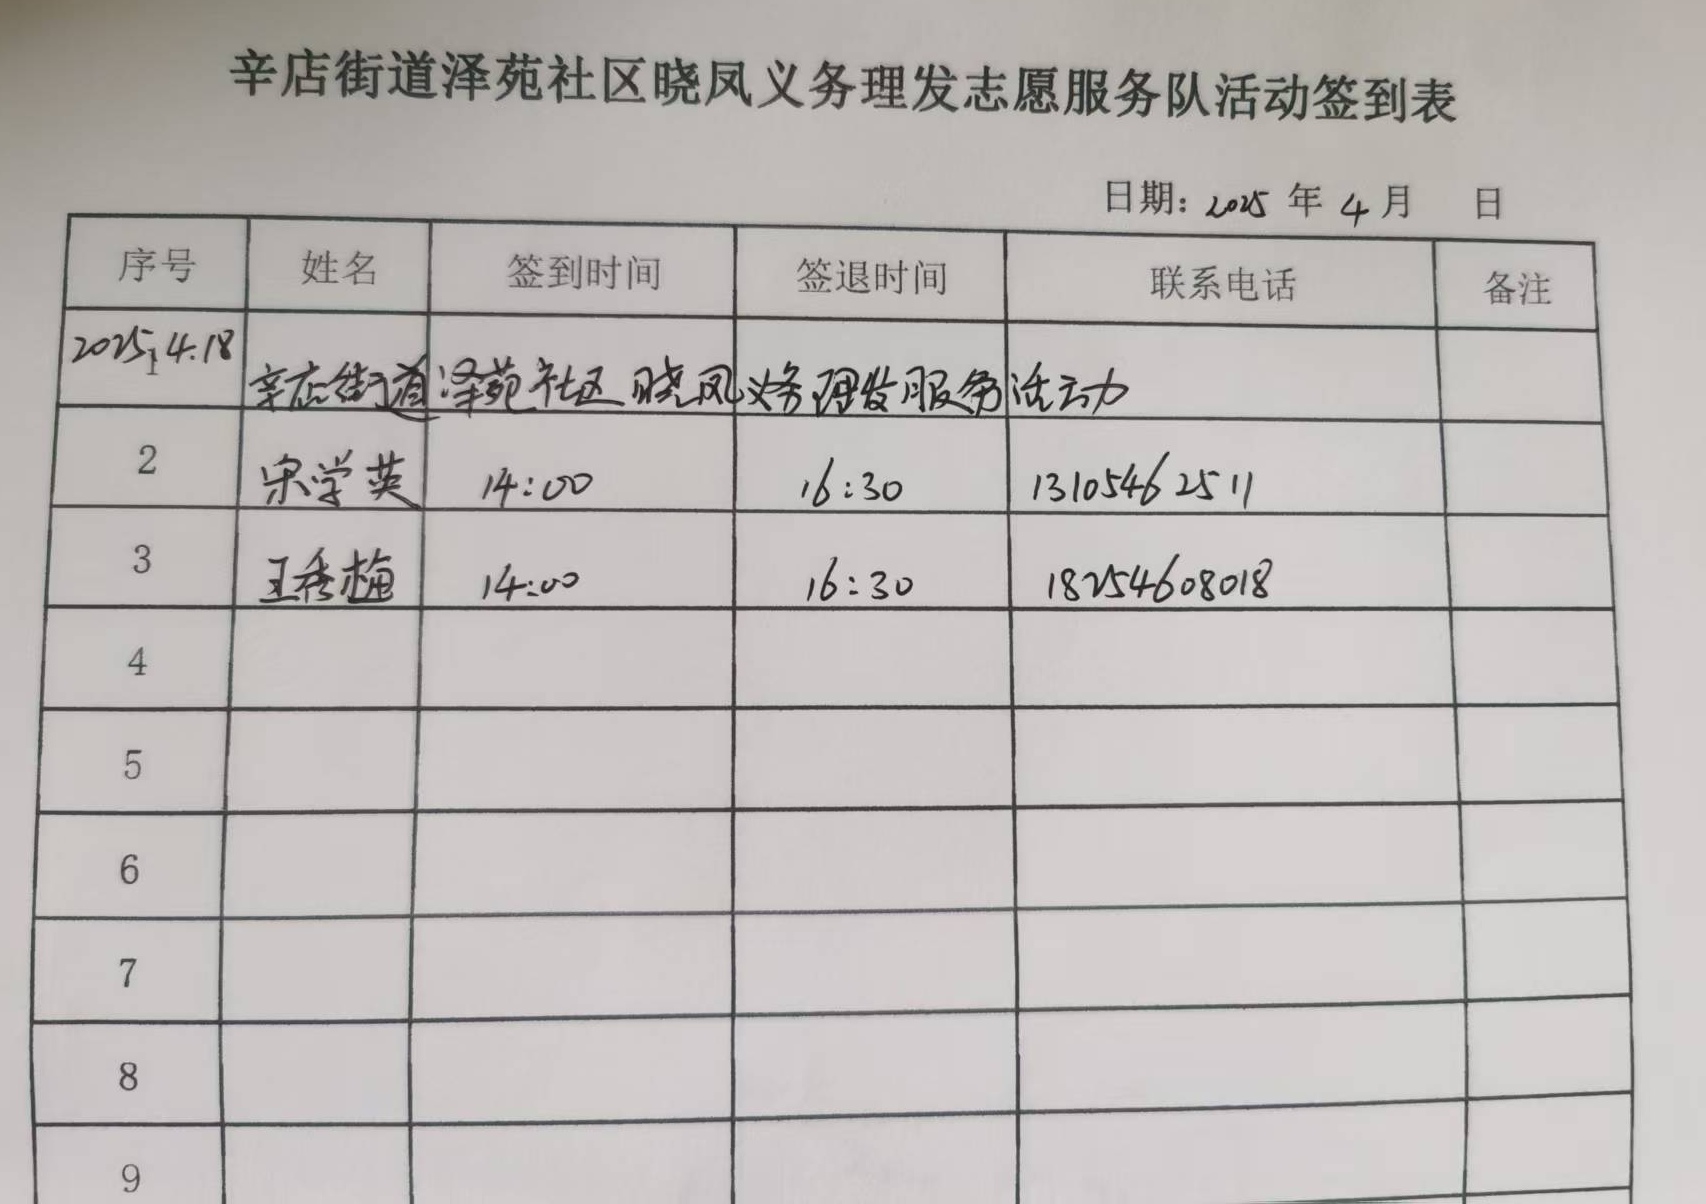 辛店街道泽苑社区晓凤义务理发志愿服务队活动签到表
日期: 2025 年 4 月 日
序号 姓名 签到时间 签退时间 联系电话 备注
1 2025.4.18 辛店街道泽苑社区晓凤义务理发服务活动
2 宋学英 14:00 16:30 13105462511
3 王秀梅 14:00 16:30 18254608018
4
5
6
7
8
9